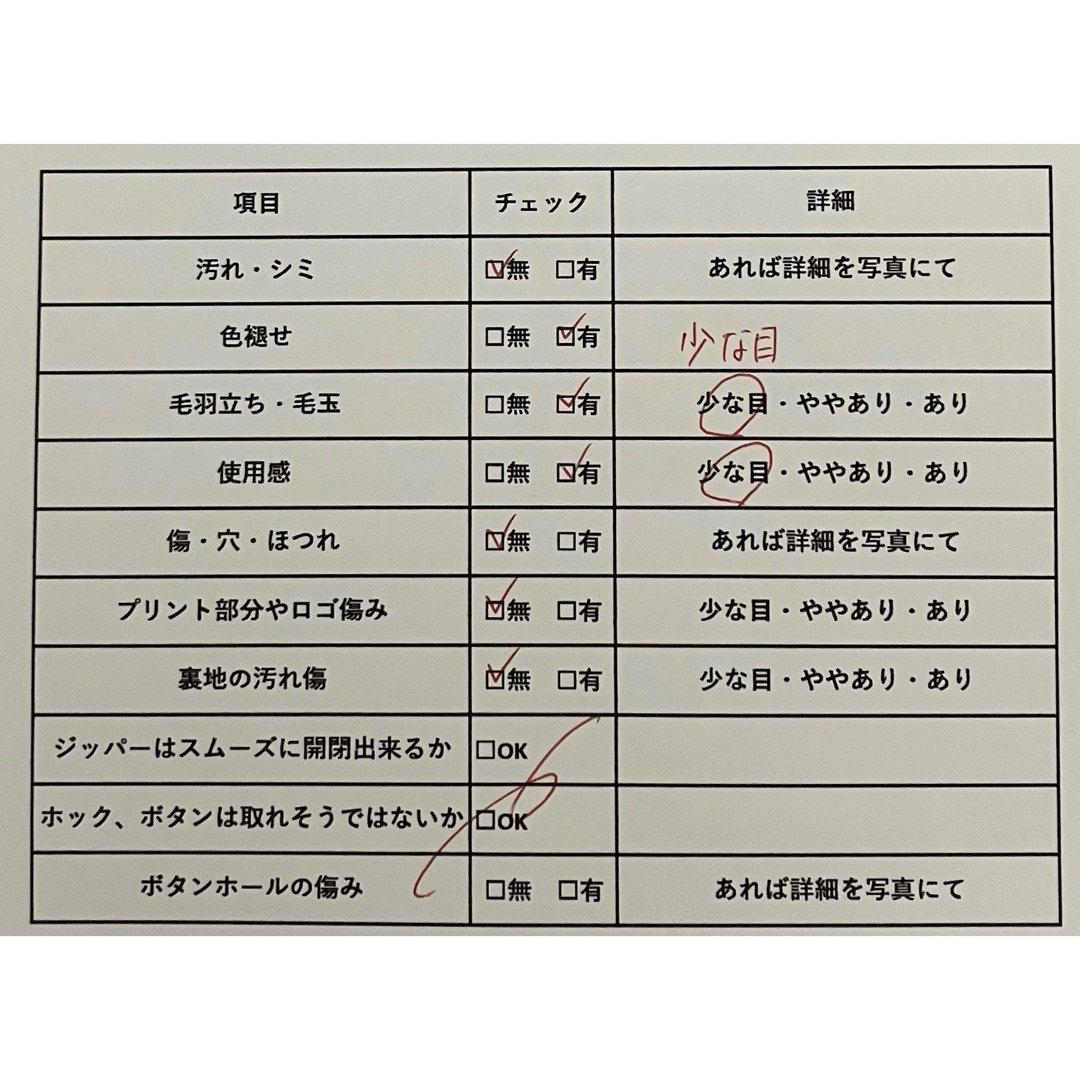 項目 チェック 詳細
汚れ・シミ ☑無 □有 あれば詳細を写真にて
色褪せ □無 ☑有 少な目
毛羽立ち・毛玉 □無 ☑有 少な目・ややあり・あり
使用感 □無 ☑有 少な目・ややあり・あり
傷・穴・ほつれ ☑無 □有 あれば詳細を写真にて
プリント部分やロゴ傷み ☑無 □有 少な目・ややあり・あり
裏地の汚れ傷 ☑無 □有 少な目・ややあり・あり
ジッパーはスムーズに開閉出来るか □OK
ホック、ボタンは取れそうではないか □OK
ボタンホールの傷み □無 □有 あれば詳細を写真にて